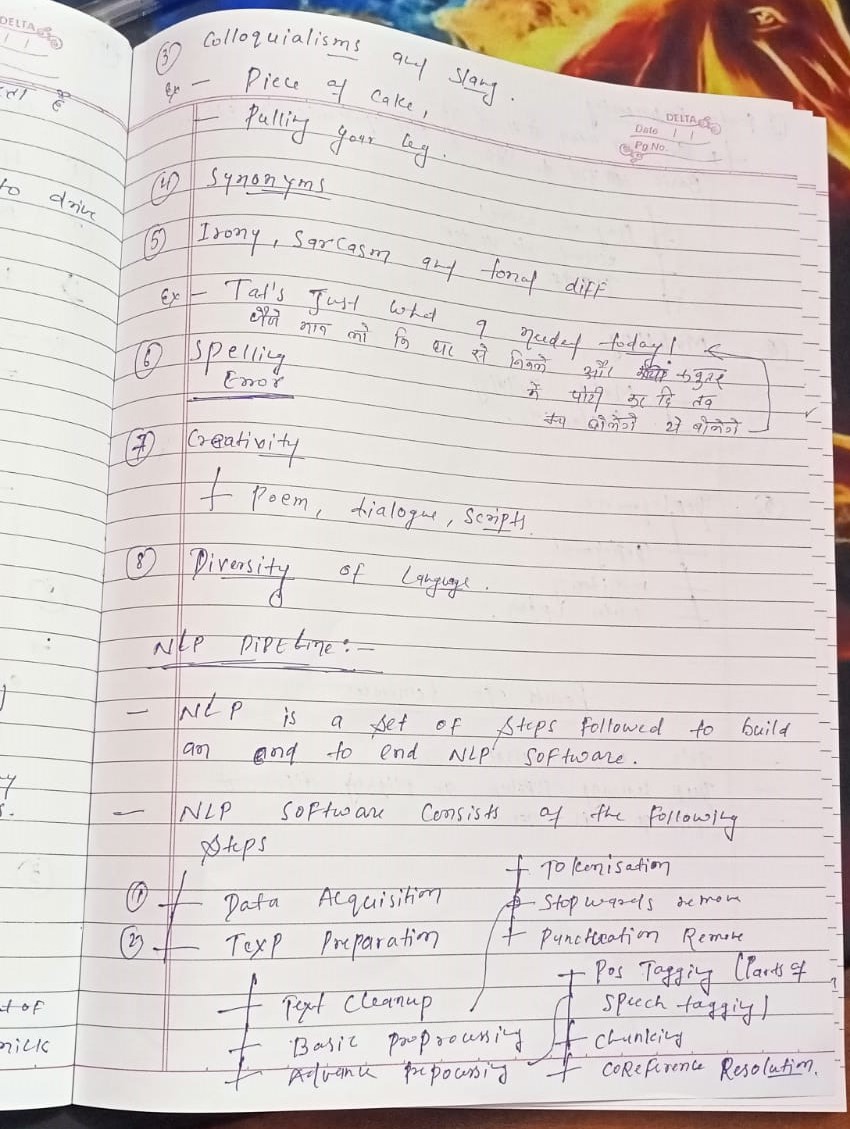 DELTA
③ Colloquialisms and slang.
Ex - Piece of Cake,
- Pulling your leg.
DELTA
Date / /
Pg No.
to drive
④ Synonyms
⑤ Irony, Sarcasm and tonal diff
Ex - Tat's Just what I needed today!
जैसे मान लो कि घर से निकले और कबूतर
⑥ Spelling
Error
में पोटी कर दि तब
हम बोलेंगे
⑦ Creativity
Poem, dialogue, scripts
⑧ Diversity of Language.
NLP PiPELine :-
- NLP is a set of steps followed to build
an end to end NLP software.
- NLP software Consists of the following
steps
① Data Acquisition
② Text Preparation
Text Cleanup
Basic preprocessing
Advance prepocessing
Tokenisation
Stop words remove
Punctuation Remove
Pos Tagging (Parts of
speech tagging)
Chunking
CoReference Resolution.
t of
milk